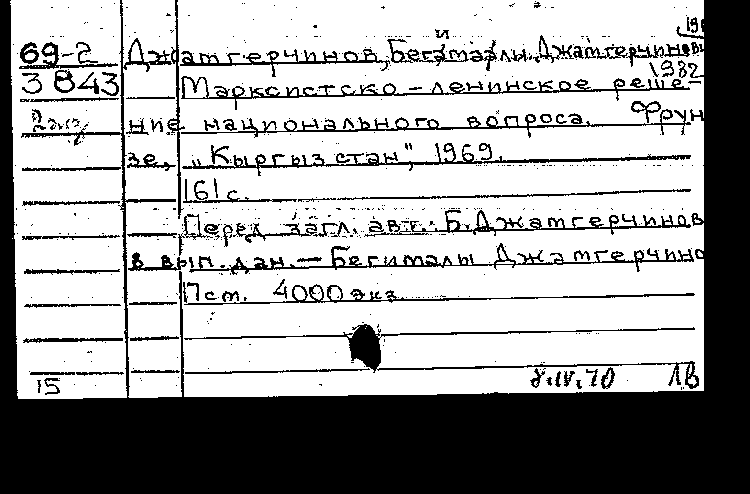 69-2 Джамгерчинов, Бегималы Джамгерчинович
3843 1982
Марксистско-ленинское реше-
ние национального вопроса. Фрун
зе, „Кыргызстан", 1969.
161 с.
Перед загл. авт.: Б. Джамгерчинов
в вып. дан. — Бегималы Джамгерчино
Пст. 4000 экз.
15 8.IV.70 1В